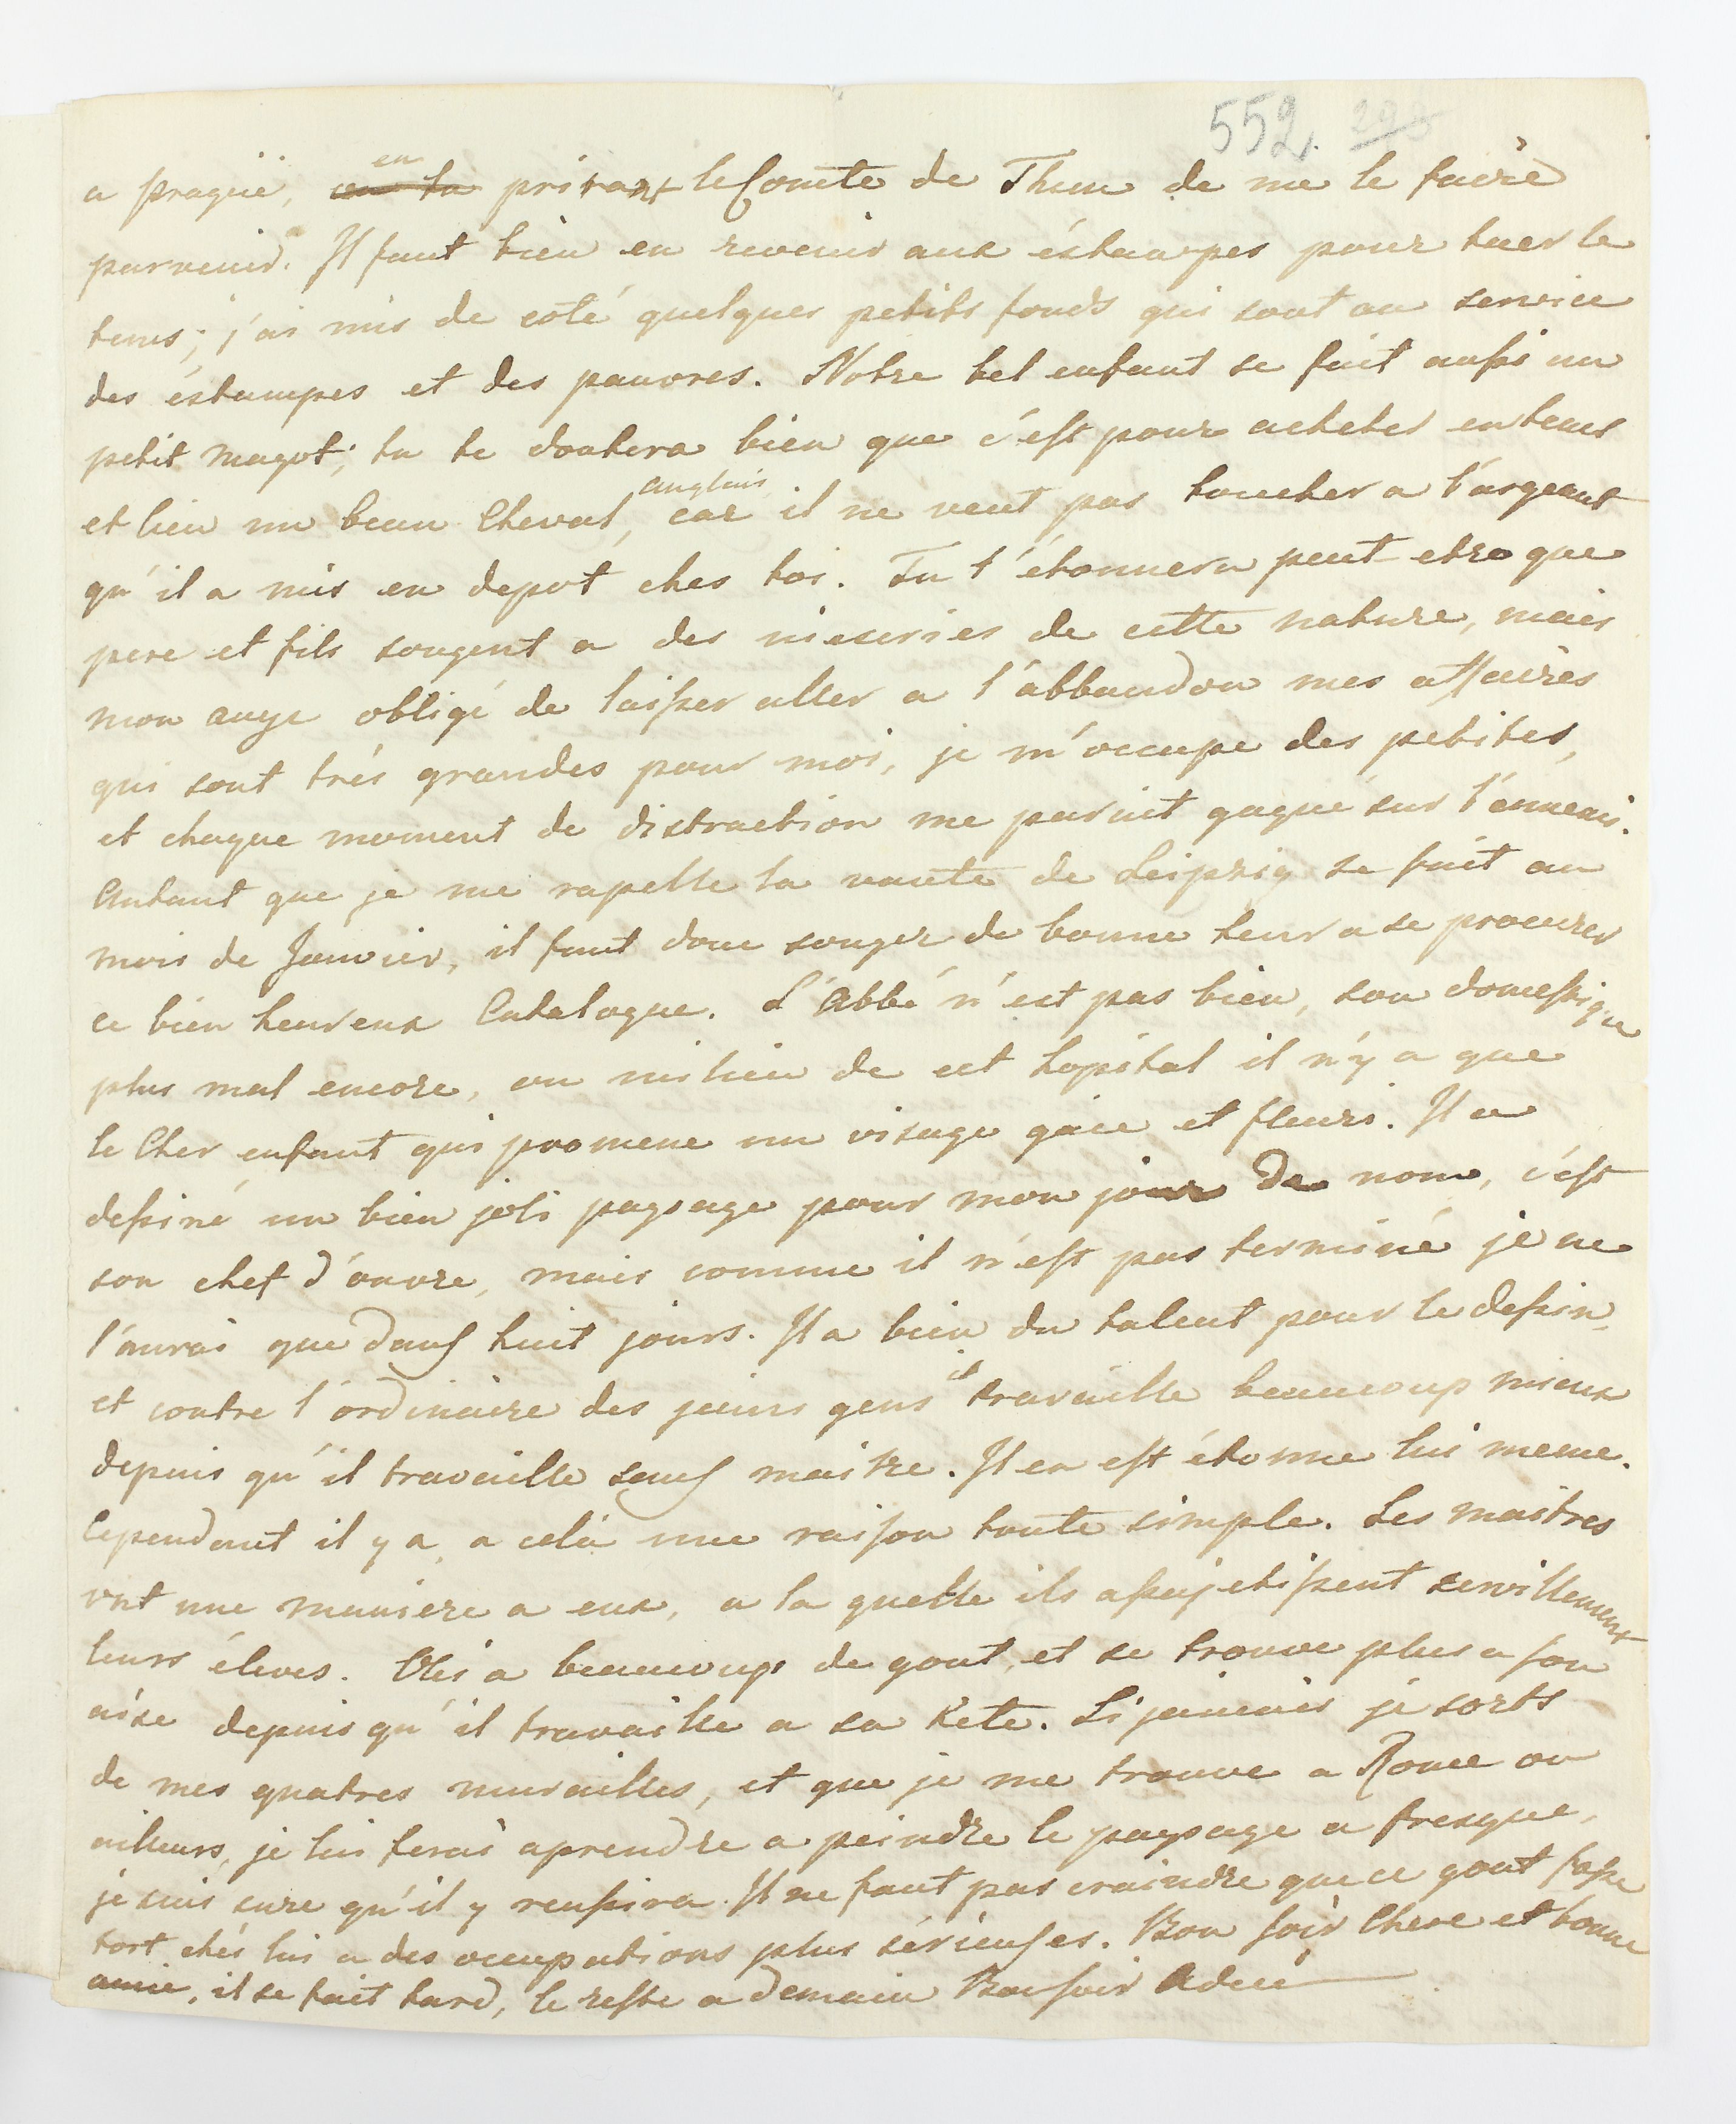 552. 293
a prague, en priant le Comte de Thun de me le faire
parvenir. Il faut bien en revenir aux éstampes pour tuer le
tems; j'ai mis de coté quelques petits fonds qui sont au service
des éstampes et des pauvres. Notre bel enfant se fait aussi un
petit magot; tu te doutera bien que c'est pour acheter en tems
et lieu un beau Cheval anglais, car il ne veut pas toucher a l'argeant
qu'il a mis en depot ches toi. Tu t'étonnera peut etre que
pere et fils songent a des nieseries de cette nature, mais
mon ange obligé de laisser aller a l'abbandon mes affaires
qui sont trés grandes pour moi, je m'occupe des petites,
et chaque moment de distraction me parait gagné sur l'ennemi.
Autant que je me rapelle la vante de Leipzig se fait au
mois de Janvier, il faut donc songer de bonne heur a se procurer
ce bien heureux Catalogue. L'Abbé n'est pas bien, son domestique
plus mal encore, au milieu de cet hopital il n'y a que
le Cher enfant qui promene un visage gaie et fleuri. Il a
dessiné un bien joli paysage pour mon jour de nom, c'est
son chef d'ouvre, mais comme il n'est pas terminé je ne
l'aurai que dans huit jours. Il a bien du talent pour le dessin,
et contre l'ordinaire des jeuns gens il travaille beaucoup mieux
depuis qu'il travaille sans maitre. Il en est étonné lui meme.
Cependant il y a, a celà une raison toute simple. Les maitres
ont une maniere a eux, a la quelle ils assujetissent servillement
leurs éleves. a beaucoup de gout, et se trouve plus a son
aise depuis qu'il travaille a sa tete. Si jamais je sorts
de mes quatres murailles, et que je me trouve a Rome ou
ailleurs, je lui ferai aprendre a peindre le paysage a fresque,
je suis sure qu'il y reussira. Il ne faut pas craindre que ce gout fasse
tort chés lui a des occupations plus sérieuses. Bon soir Chere et bonne
amie, il se fait tard, le reste a demain Bonsoir Adieu